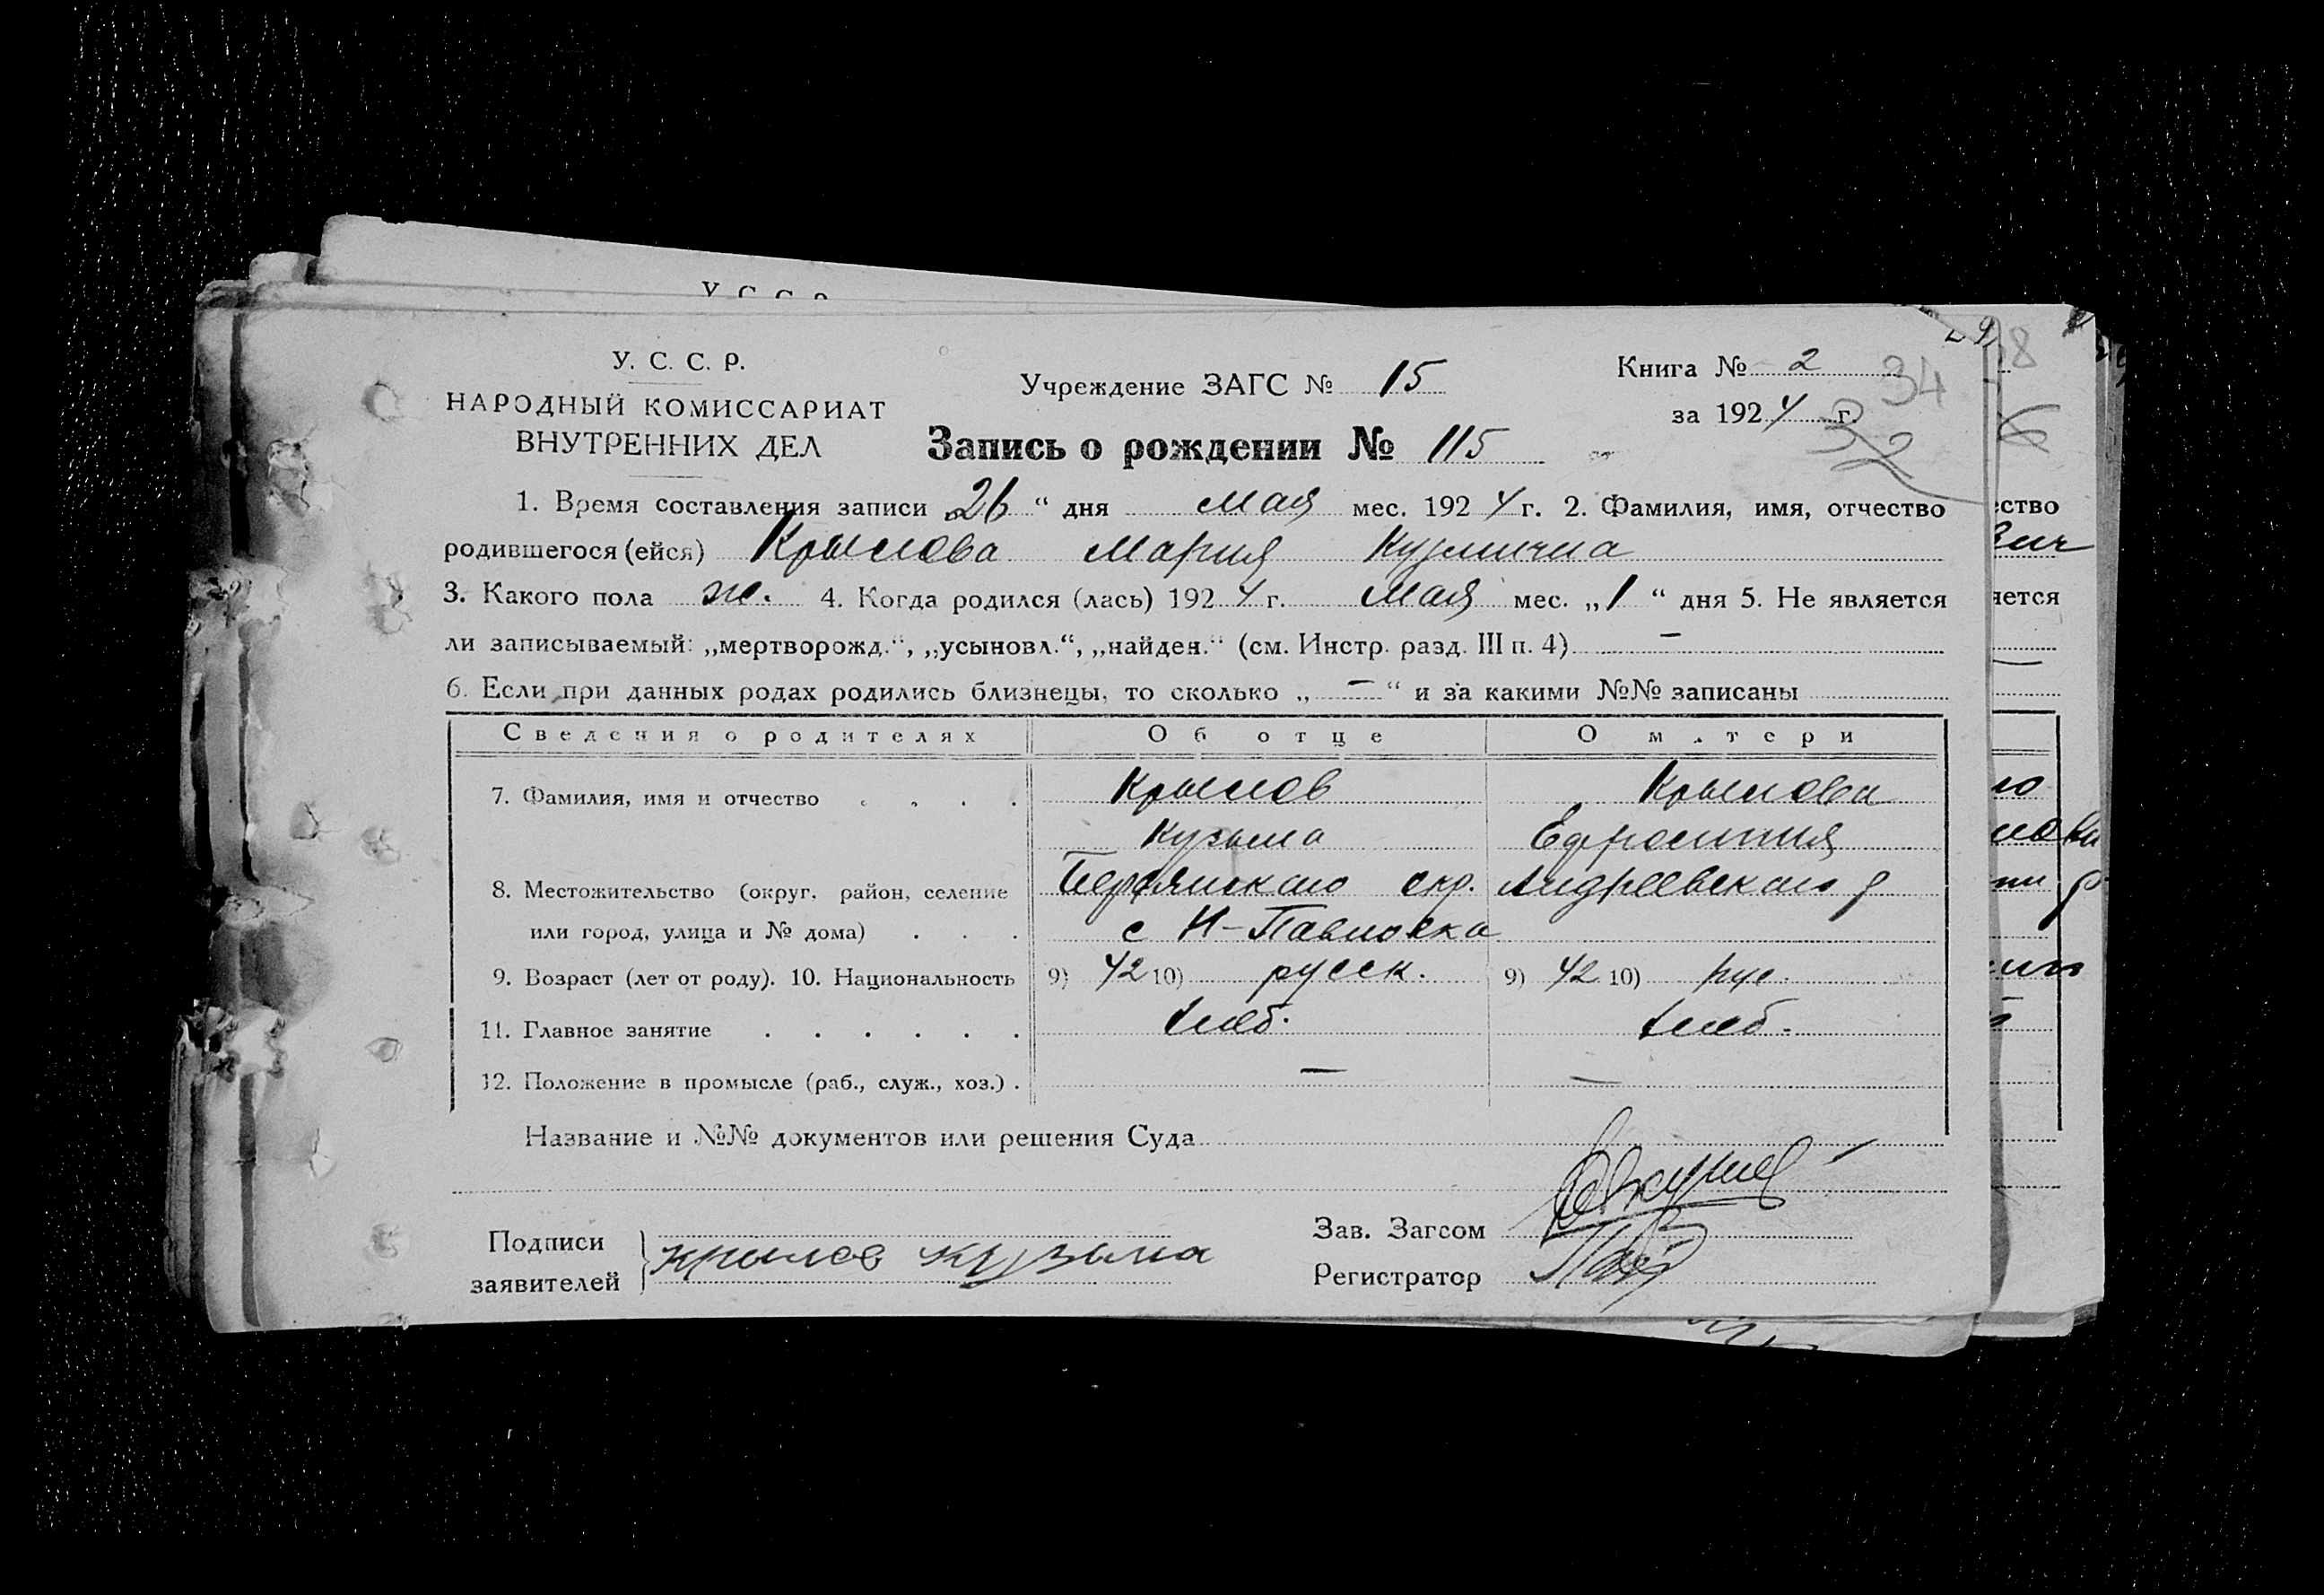 У С С Р
У. С. С. Р.
НАРОДНЫЙ КОМИССАРИАТ
ВНУТРЕННИХ ДЕЛ
Учреждение ЗАГС № 15
Книга № 2
34
за 1924 г.
32
Запись о рождении № 115
1. Время составления записи 26 “ дня мая мес. 1924 г. 2. Фамилия, имя, отчество
родившегося (ейся) Крылова Мария Кузминна
3. Какого пола ж. 4. Когда родился (лась) 1924 г. мая мес. „1“ дня 5. Не является
ли записываемый: „мертворожд.“, „усыновл.“, „найден.“ (см. Инстр. разд. III п. 4) –
6. Если при данных родах родились близнецы, то сколько „ – “ и за какими №№ записаны
Сведения о родителях Об отце О м.тери
7. Фамилия, имя и отчество . . . . Крылов Крылова
Кузьма Ефросиния
8. Местожительство (округ, район, селение Бердянского окр. Андреевского р
или город, улица и № дома) . . . с Н-Павловка
9. Возраст (лет от роду). 10. Национальность 9) 42 10) русск. 9) 42 10) рус.
11. Главное занятие . . . . . . хлеб. хлеб.
12. Положение в промысле (раб., служ., хоз.) . — —
Название и №№ документов или решения Суда
Подписи
заявителей
крылов кузьма
Зав. Загсом
Регистратор